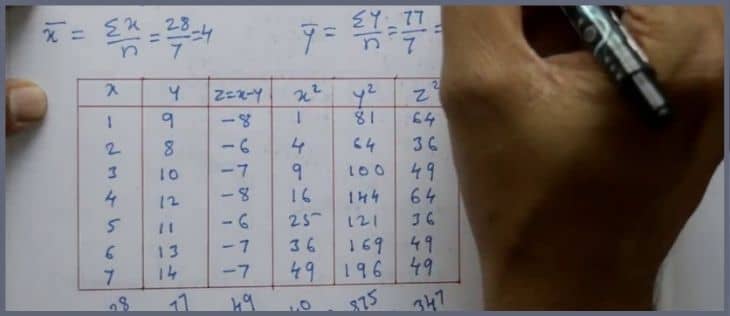 x̄ = Σx/n = 28/7 = 4 ȳ = Σy/n = 77/7 =
x y z=x-y x² y² z²
1 9 -8 1 81 64
2 8 -6 4 64 36
3 10 -7 9 100 49
4 12 -8 16 144 64
5 11 -6 25 121 36
6 13 -7 36 169 49
7 14 -7 49 196 49
28 77 49 875 347